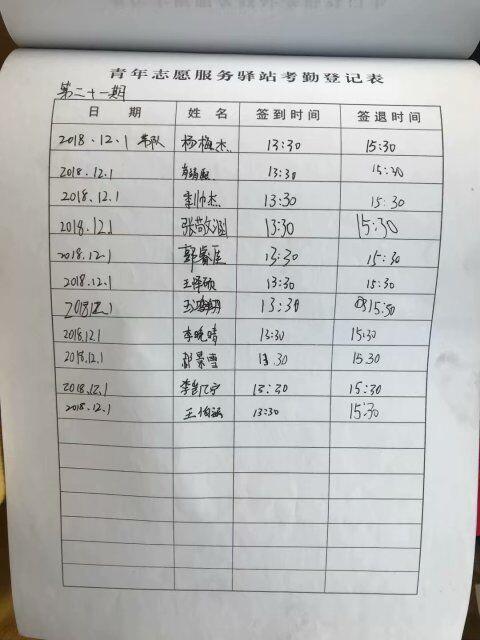 青年志愿服务驿站考勤登记表
第二十一期
日 期 姓 名 签到时间 签退时间
2018.12.1 军队 杨梅杰 13:30 15:30
2018.12.1 13:30 15:30
2018.12.1 帅杰 13:30 15:30
2018.12.1 张 13:30 15:30
2018.12.1 郭睿 13:30 15:30
2018.12.1 王泽硕 13:30 15:30
2018.12.1 13:30 15:30
2018.12.1 李晚晴 13:30 15:30
2018.12.1 景雪 13.30 15.30
2018.12.1 李 宁 13:30 15:30
2018.12.1 王伯涵 13:30 15:30